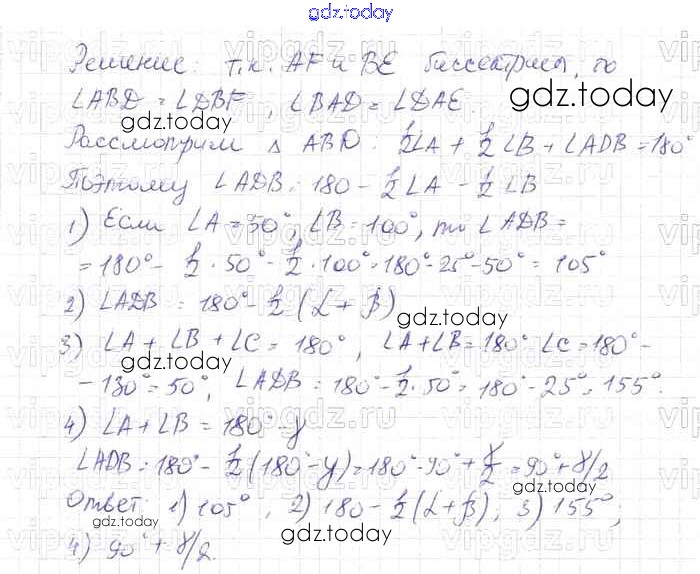 gdz.today
Решение: т.к. AF и BE биссектрисы, то
∠ABD = ∠DBF, ∠BAD = ∠DAE.
gdz.today
gdz.today
Рассмотрим △ ABD: ½∠A + ½∠B + ∠ADB = 180°
Поэтому ∠ADB = 180 - ½∠A - ½∠B
1) Если ∠A = 50°, ∠B = 100°, то ∠ADB =
= 180° - ½ · 50° - ½ · 100° = 180° - 25° - 50° = 105°
2) ∠ADB = 180° - ½(α + β)
gdz.today
3) ∠A + ∠B + ∠C = 180°, ∠A + ∠B = 180° ∠C = 180° -
gdz.today
- 130° = 50°, ∠ADB = 180° - ½ · 50° = 180° - 25° = 155°.
4) ∠A + ∠B = 180° - γ
∠ADB = 180° - ½(180° - γ) = 180° - 90° + γ/2 = 90° + γ/2
gdz.today
Ответ: 1) 105°, 2) 180 - ½(α + β), 3) 155°;
gdz.today
gdz.today
4) 90° + γ/2.